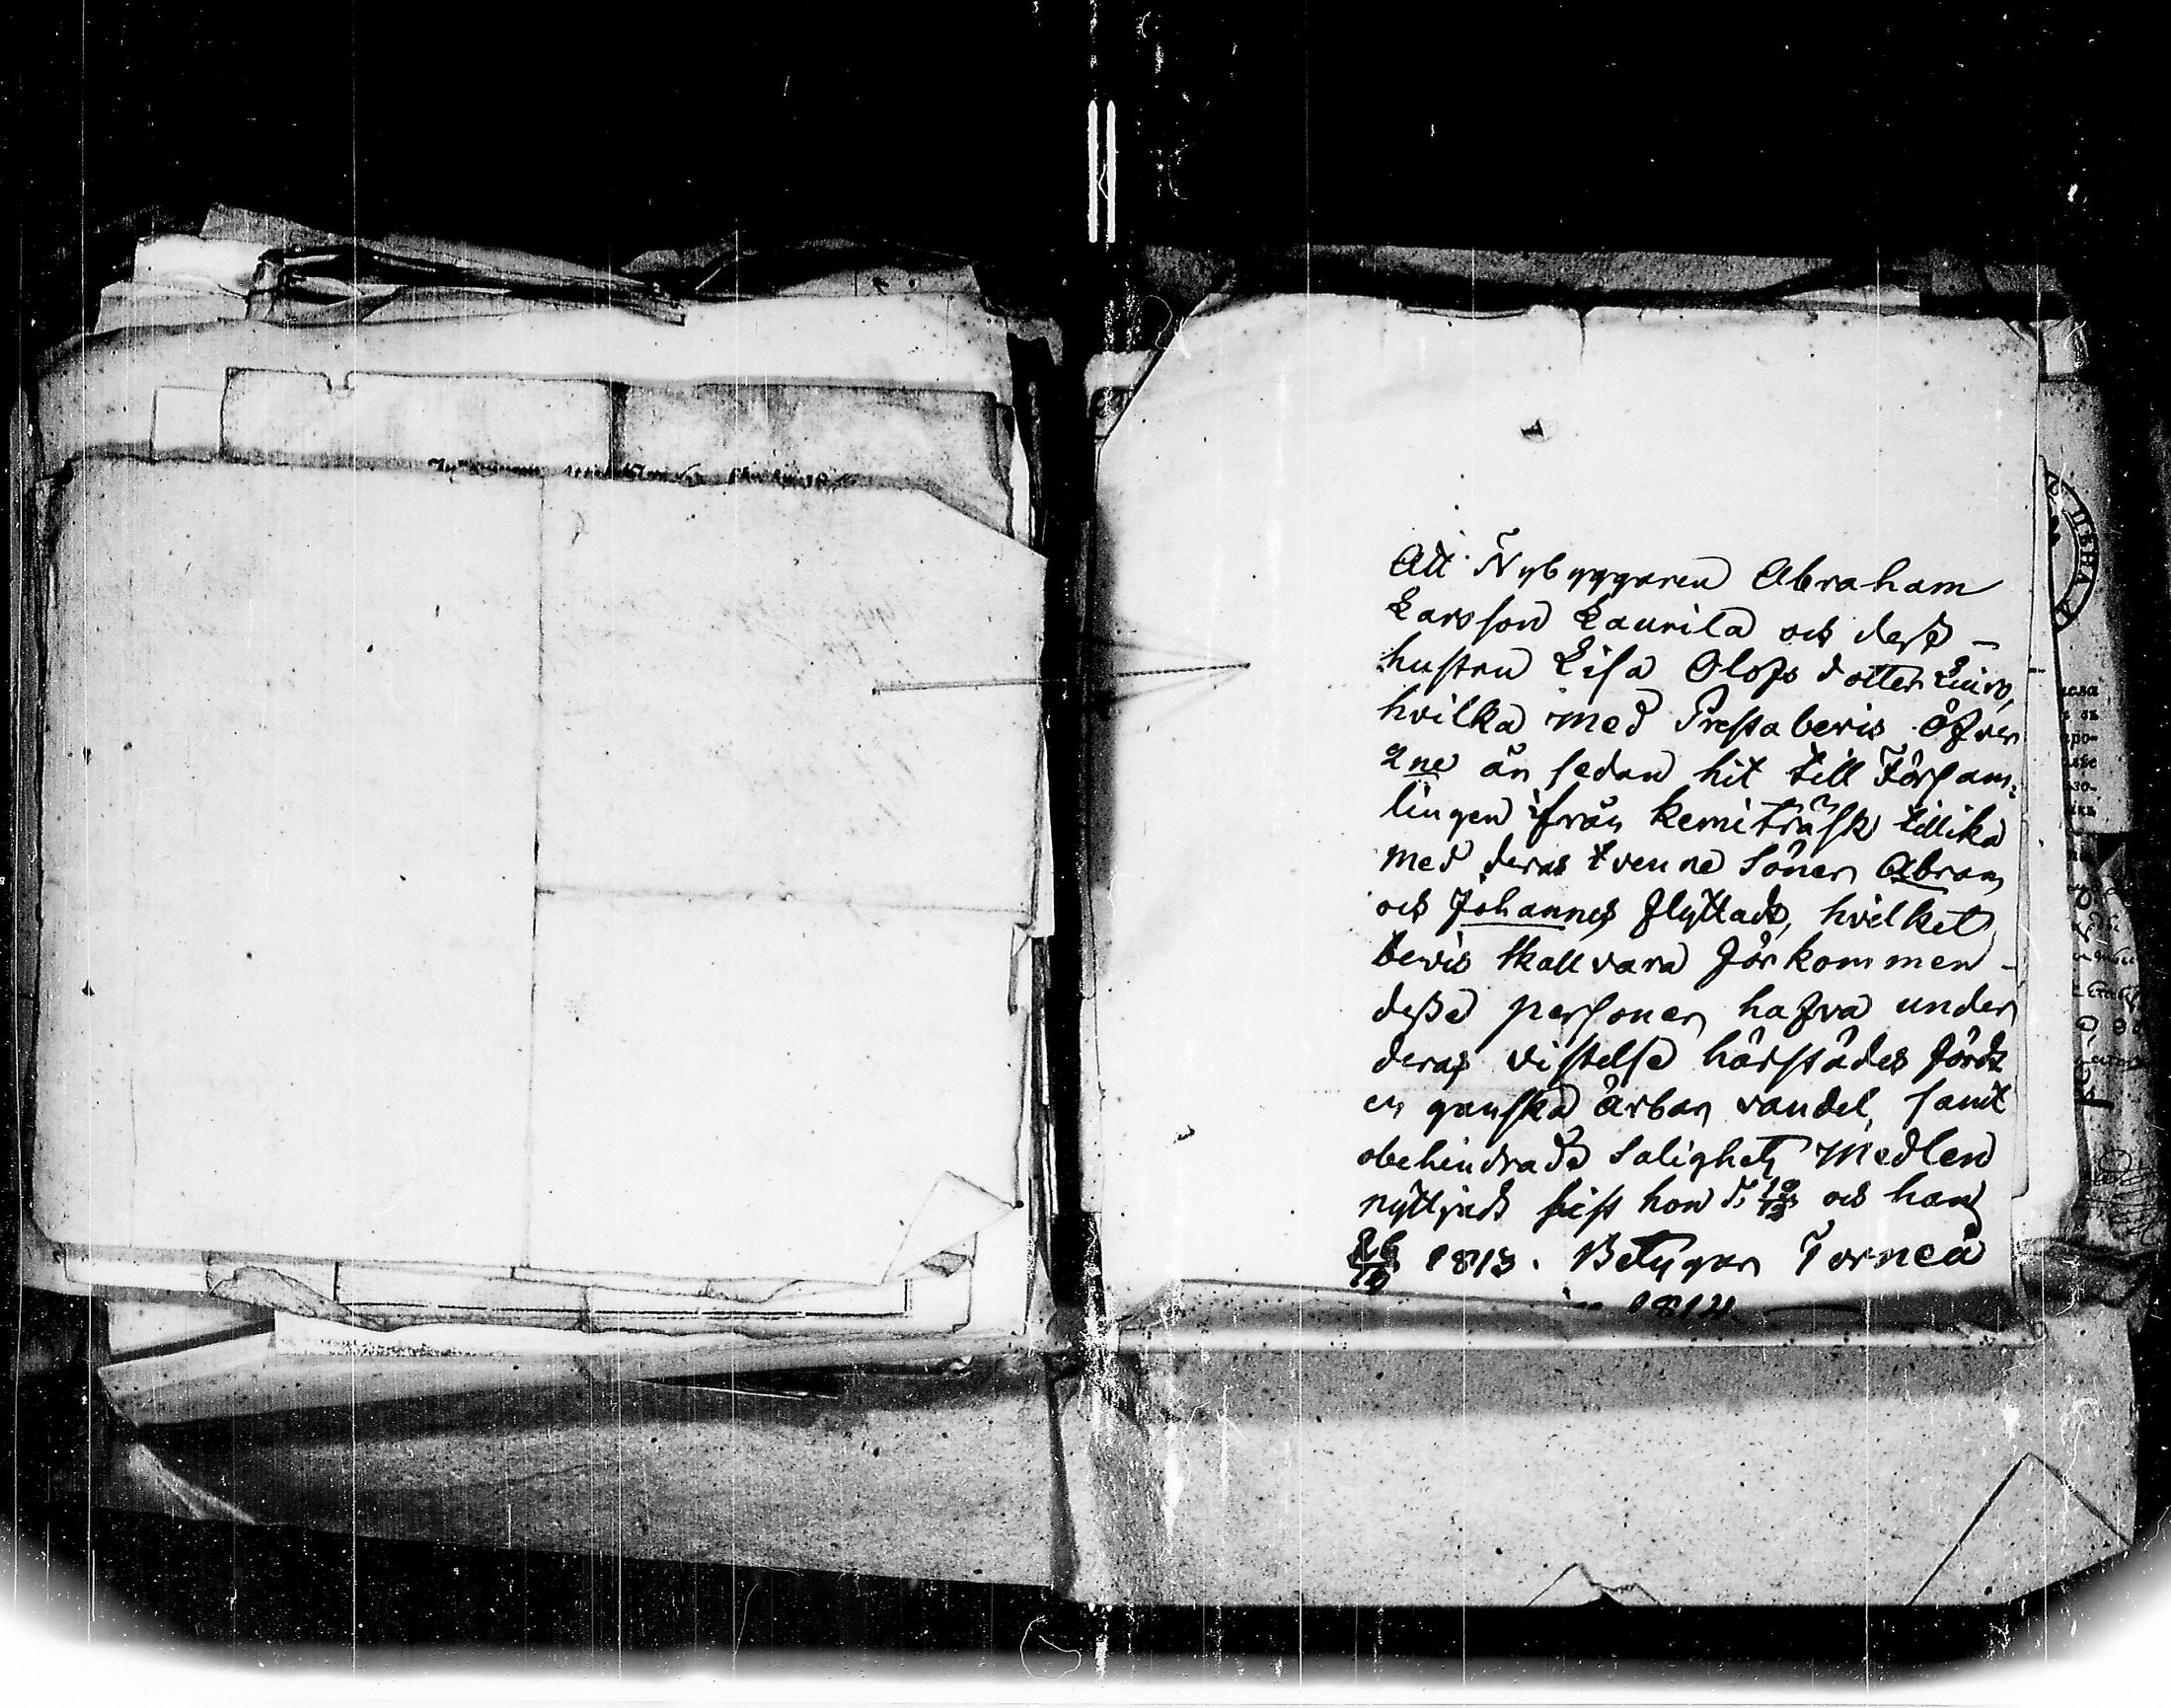 Att Nybyggaren Abraham
Larsson Laurila och dess
hustru Lisa Olofs dotter
hvilka med Prestabevis öfver
2ne år sedan hit till Försam-
lingen ifrån Kemiträsk tillika
med deras tvenne Söner Abram
och Johannes flyttadt, hvilket
bevis skall vara förkommen -
desse personer hafva under
deras vistelse härstädes fördt
en ganska ärbar vandel, samt
obehindrade Salighets Medlen
nyttjadt sist hon d. och han
1813. Betygar Torneå
ЦѢНА